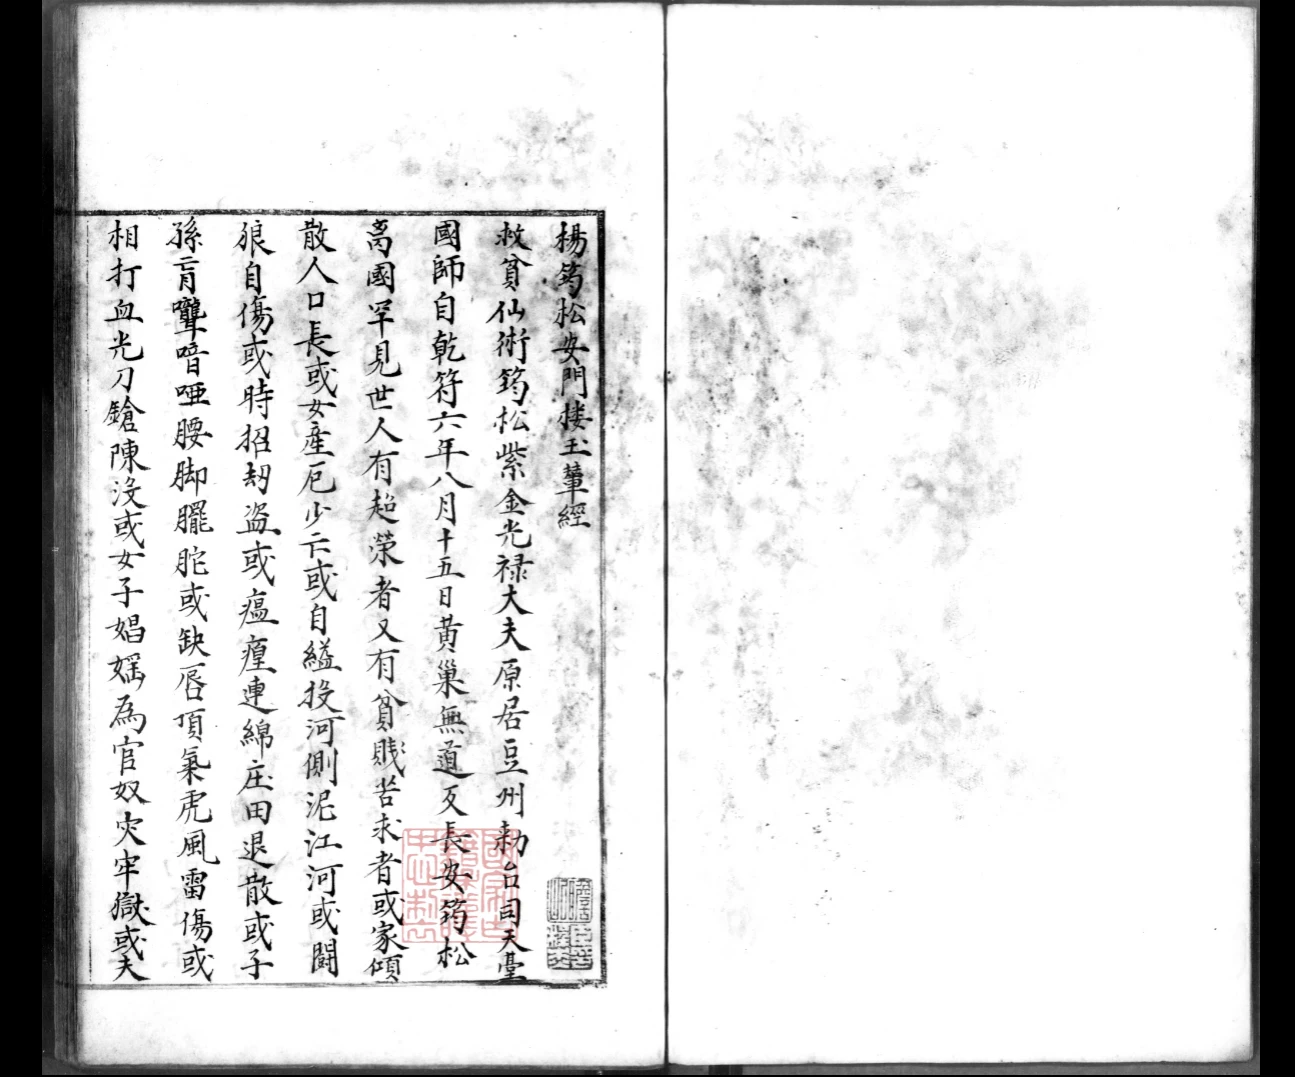 楊筠松安門楼玉輦經
救貧仙術筠松紫金光禄大夫原居豆州勅台司天臺
國師自乾符六年八月十五日黄巢無道反長安筠松
离國罕見世人有超荣者又有貧賤苦求者或家傾
散人口長或女産厄少亡或自縊投河側泥江河或鬪
狼自傷或時招刧盗或瘟㾮連綿庄田退散或子
孫盲聾喑哑腰脚㿚𦚐或缺唇頂氣虎風雷傷或
相打血光刀鎗陳没或女子娼婬為官奴灾牢獄或夫